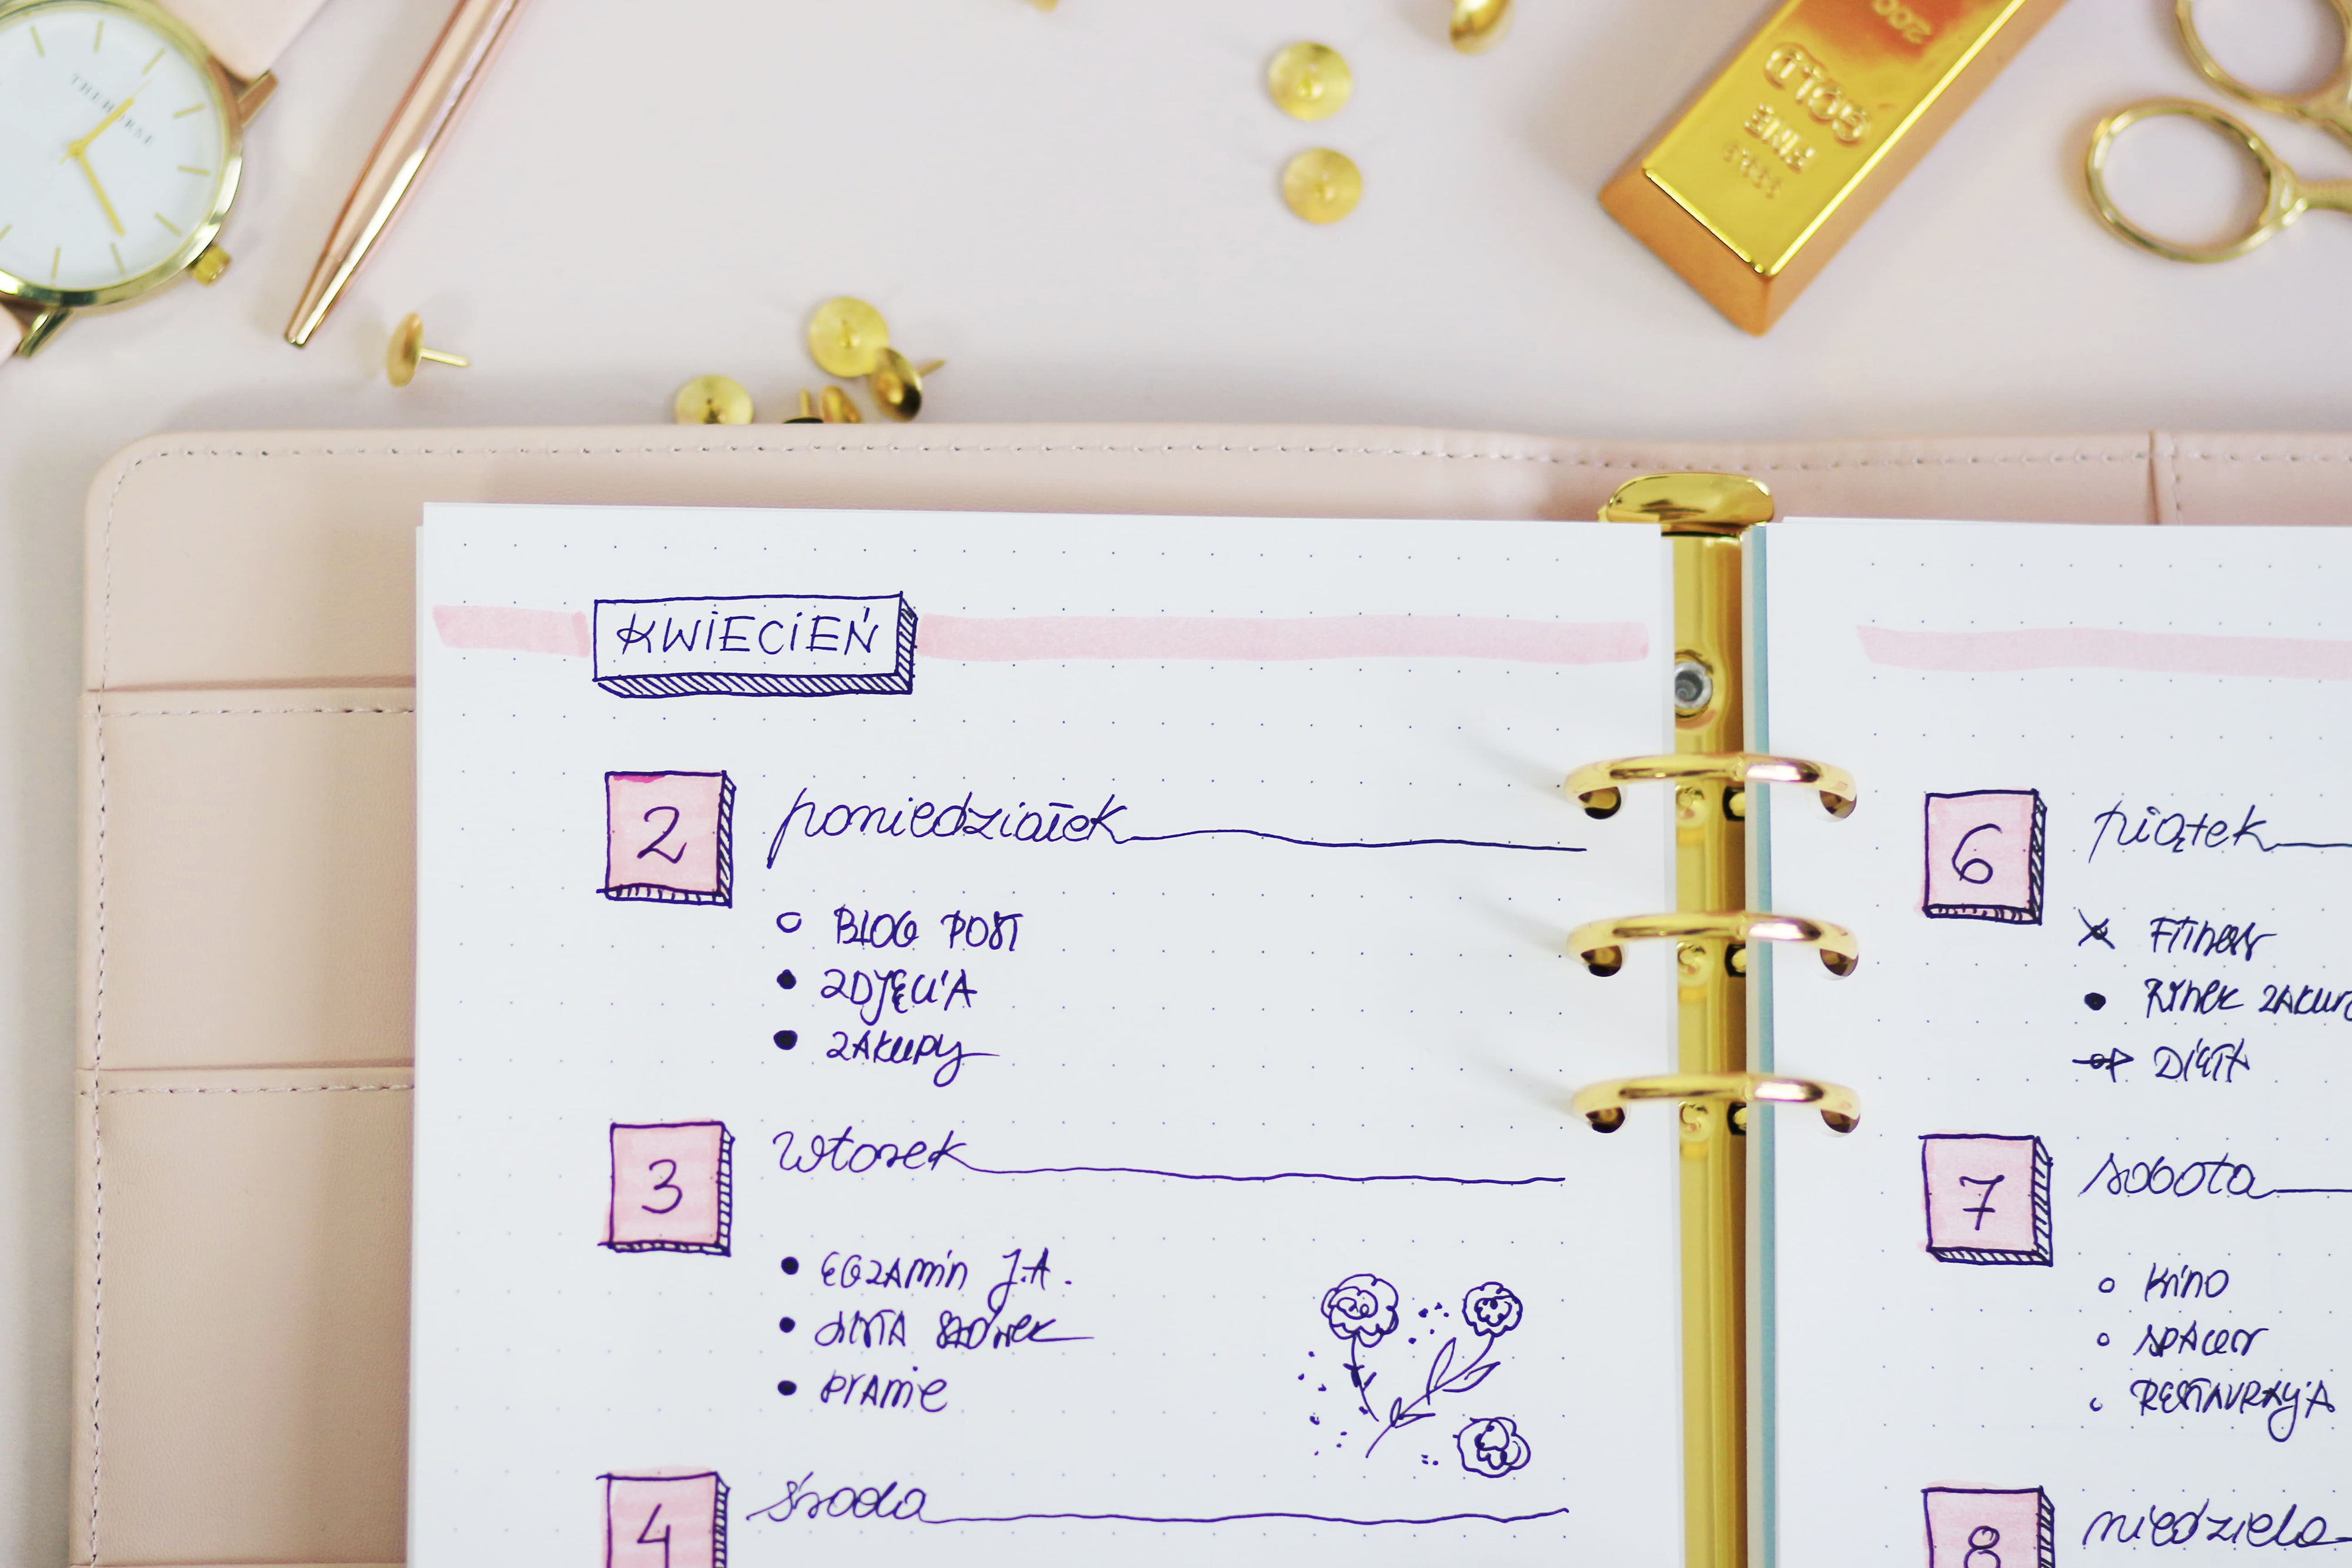 THE HORSE
GOLD
FINE
KWIECIEŃ
2 poniedziałek
BLOG POST
ZDJĘCIA
ZAKUPY
3 wtorek
EGZAMIN J.A.
PRANIE
4 środa
6 piątek
FITNESS
RYNEK
DIETA
7 sobota
KINO
SPACER
RESTAURACJA
8 niedziela